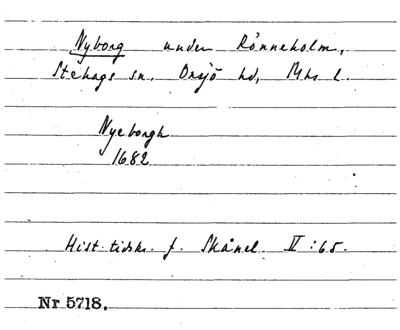 Nyborg under Rönneholm,
Stehags sn., Onsjö hd, Mhs l.
Nyeborgh
1682
Hist. tidskr. f. Skånel. II:65.
Nr 5718.